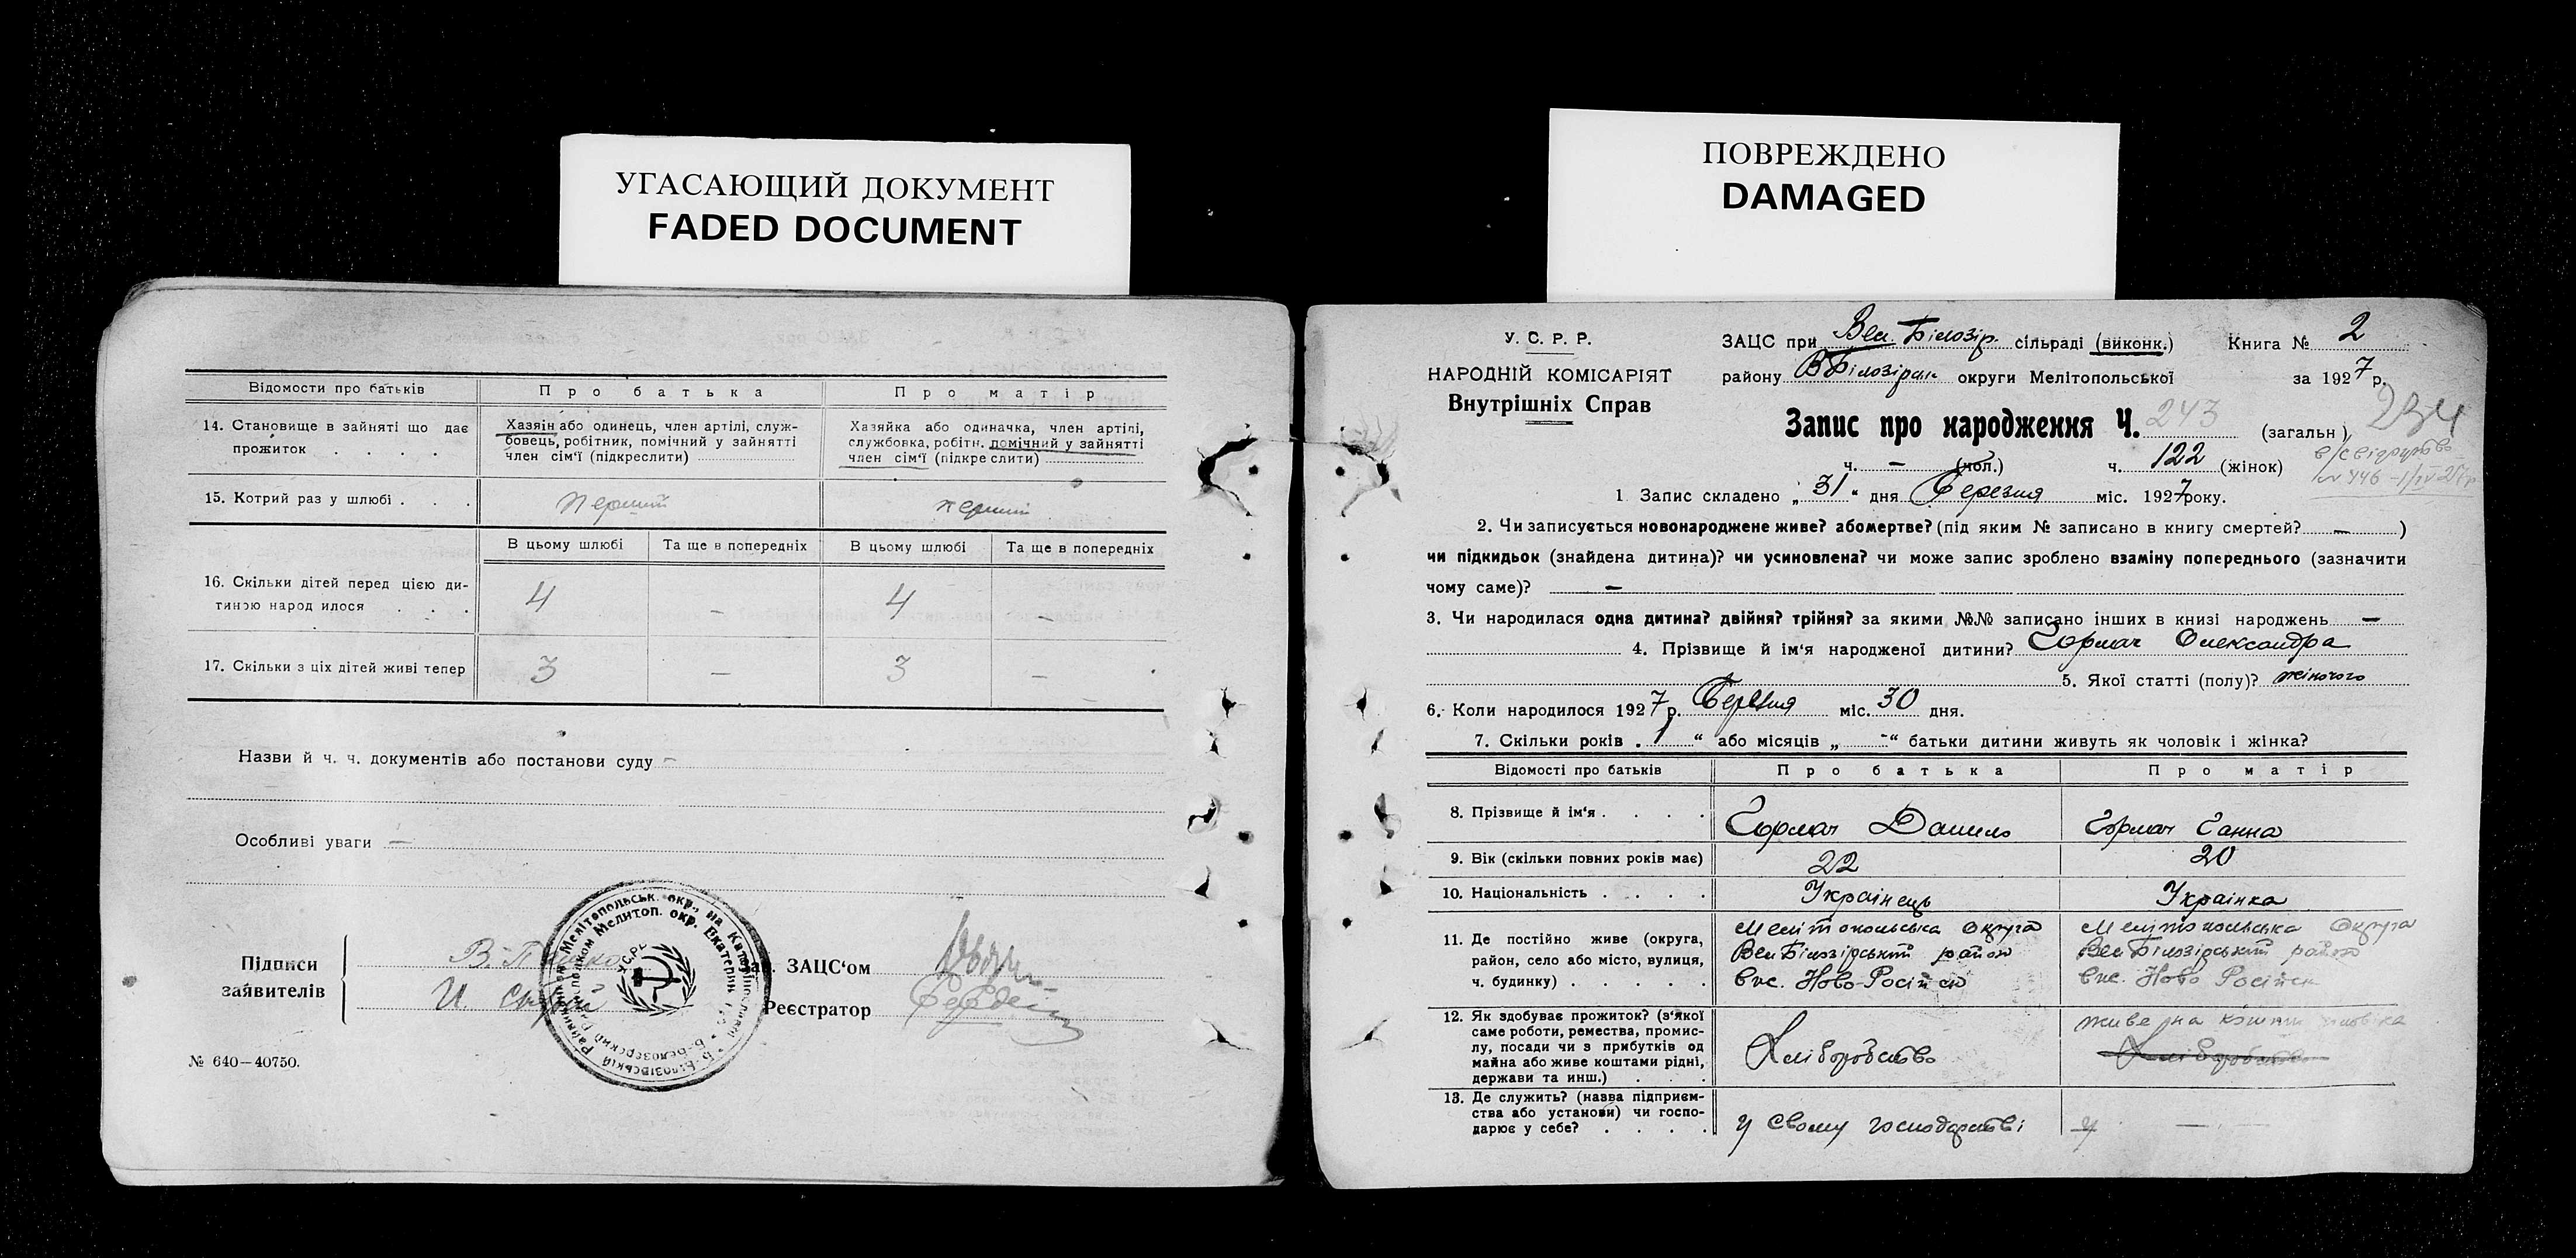 УГАСАЮЩИЙ ДОКУМЕНТ
FADED DOCUMENT
Відомости про батьків
Про батька
Про матір
14. Становище в зайняті що дає
прожиток . . . .
Хазяін або одинець, член артілі, служ-
бовець, робітник, помічний у зайнятті
член сім'ї (підкреслити)
Хазяйка або одиначка, член артілі,
службовка, робітн. помічний у зайнятті
член сім'ї (підкреслити)
15. Котрий раз у шлюбі . . .
перший
перший
В цьому шлюбі
Та ще в попередніх
В цьому шлюбі
Та ще в попередніх
16. Скільки дітей перед цією ди-
тиною народилося . . .
4 – 4 –
17. Скільки з ціх дітей живі тепер
3 – 3 –
Назви й ч. ч. документів або постанови суду –
Особливі уваги –
Підписи
заявителів
ЗАЦС'ом
Реєстратор
№ 640—40750.
ПОВРЕЖДЕНО
DAMAGED
У. С. Р. Р.
НАРОДНІЙ КОМІСАРІЯТ
Внутрішніх Справ
ЗАЦС при Вел. Білозір. сільраді (виконк.) Книга № 2
району ВБілозірськ округи Мелітопольської за 1927 р.
Запис про народження Ч. 243 (загальн) 234
ч. – (чол.) ч. 122 (жінок)
1 Запис складено „31" дня Березня міс. 1927 року.
2. Чи записується новонароджене живе? або мертве? (під яким № записано в книгу смертей? – )
чи підкидьок (знайдена дитина)? чи усиновлена? чи може запис зроблено взаміну попереднього (зазначити
чому саме)? –
3. Чи народилася одна дитина? двійня? трійня? за якими №№ записано інших в книзі народжень –
4. Прізвище й ім'я народженої дитини? Гормач Олександра
5. Якої статті (полу)? жіночого
6. Коли народилося 1927 р. Березня міс. 30 дня.
7. Скільки років „ “ або місяців „-“ батьки дитини живуть як чоловік і жінка?
Відомості про батьків
Про батька
Про матір
8. Прізвище й ім'я . . . .
Гормач Данило
Гормач Ганна
9. Вік (скільки повних років має)
22
20
10. Національність . . . .
Українець
Українка
11. Де постійно живе (округа,
район, село або місто, вулиця,
ч. будинку) . . . . .
Мелітопольська Округа
Вел Білозірський район
Ново-Російськ
Мелітопольська Округа
Вел Білозірський район
Ново Російськ
12. Як здобуває прожиток? (з'якої
саме роботи, ремества, промис-
лу, посади чи з прибутків од
майна або живе коштами рідні,
держави та инш.) . . .
Хліборобство
живе на кошти чоловіка
Хліборобство
13. Де служить? (назва підприєм-
ства або установи) чи госпо-
дарює у себе? . . . .
у свому господарстві
у –